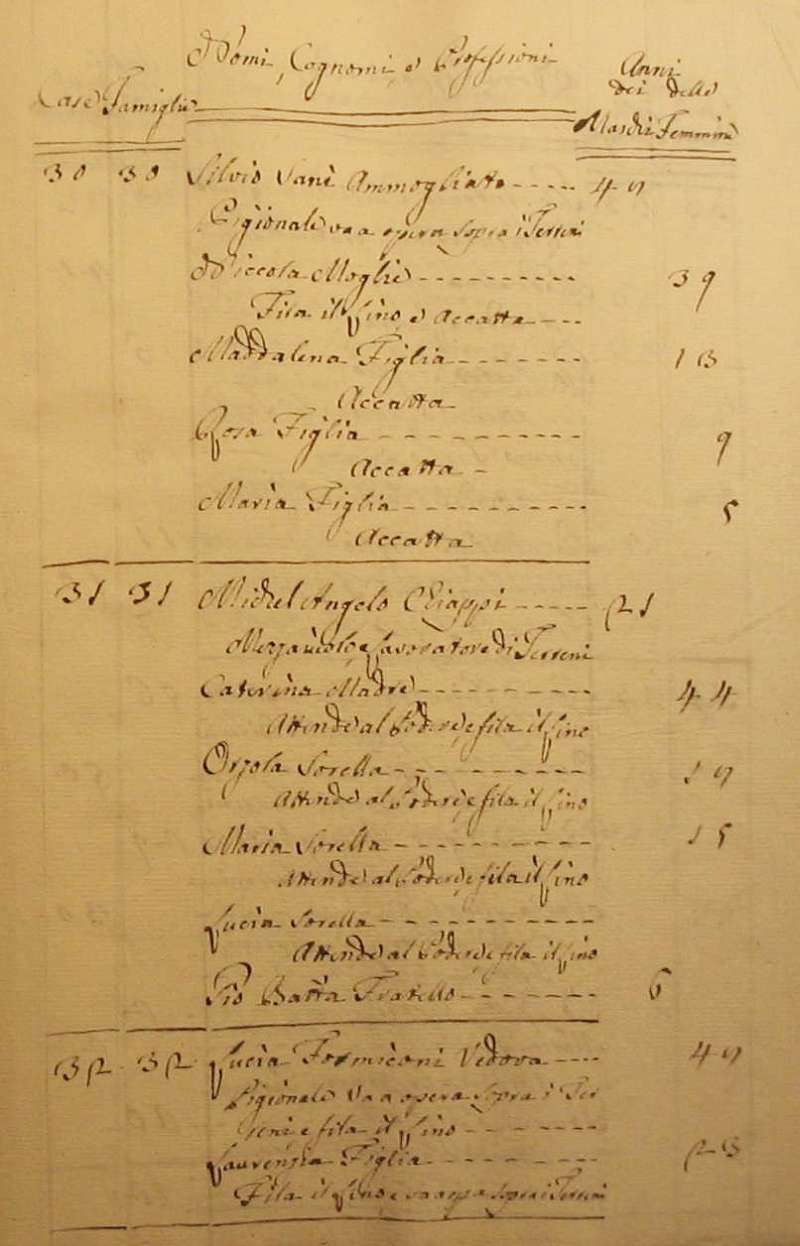 Nomi, Cognomi e Professioni
Anni
dei dello
Case Famiglie
Maschi Femmine
30 30 Silvio Vani Ammogliato 40
Pigionale va a opera sopra i Terreni
Niccola Moglie 39
Fila il Lino e Accatta
Maddalena Figlia 13
Accatta
Rosa Figlia 9
Accatta
Maria Figlia 5
Accatta
31 31 Michel Angelo Chiappi 21
Mezzaiolo e lavoratore di Terreni
Caterina Madre 44
Attende al Podere e fila il Lino
Orsola Sorella 19
Attende al Podere e fila il Lino
Maria Sorella 15
Attende al Podere e fila il Lino
Lucia Sorella
Attende al Podere e fila il Lino
Gio Batta Fratello 6
32 32 Lucia Formiconi Vedova 40
Pigionale va a opera sopra i Ter
reni e fila il Lino
Laurenzia Figlia 23
Fila il Lino e va a opera sopra i Terreni